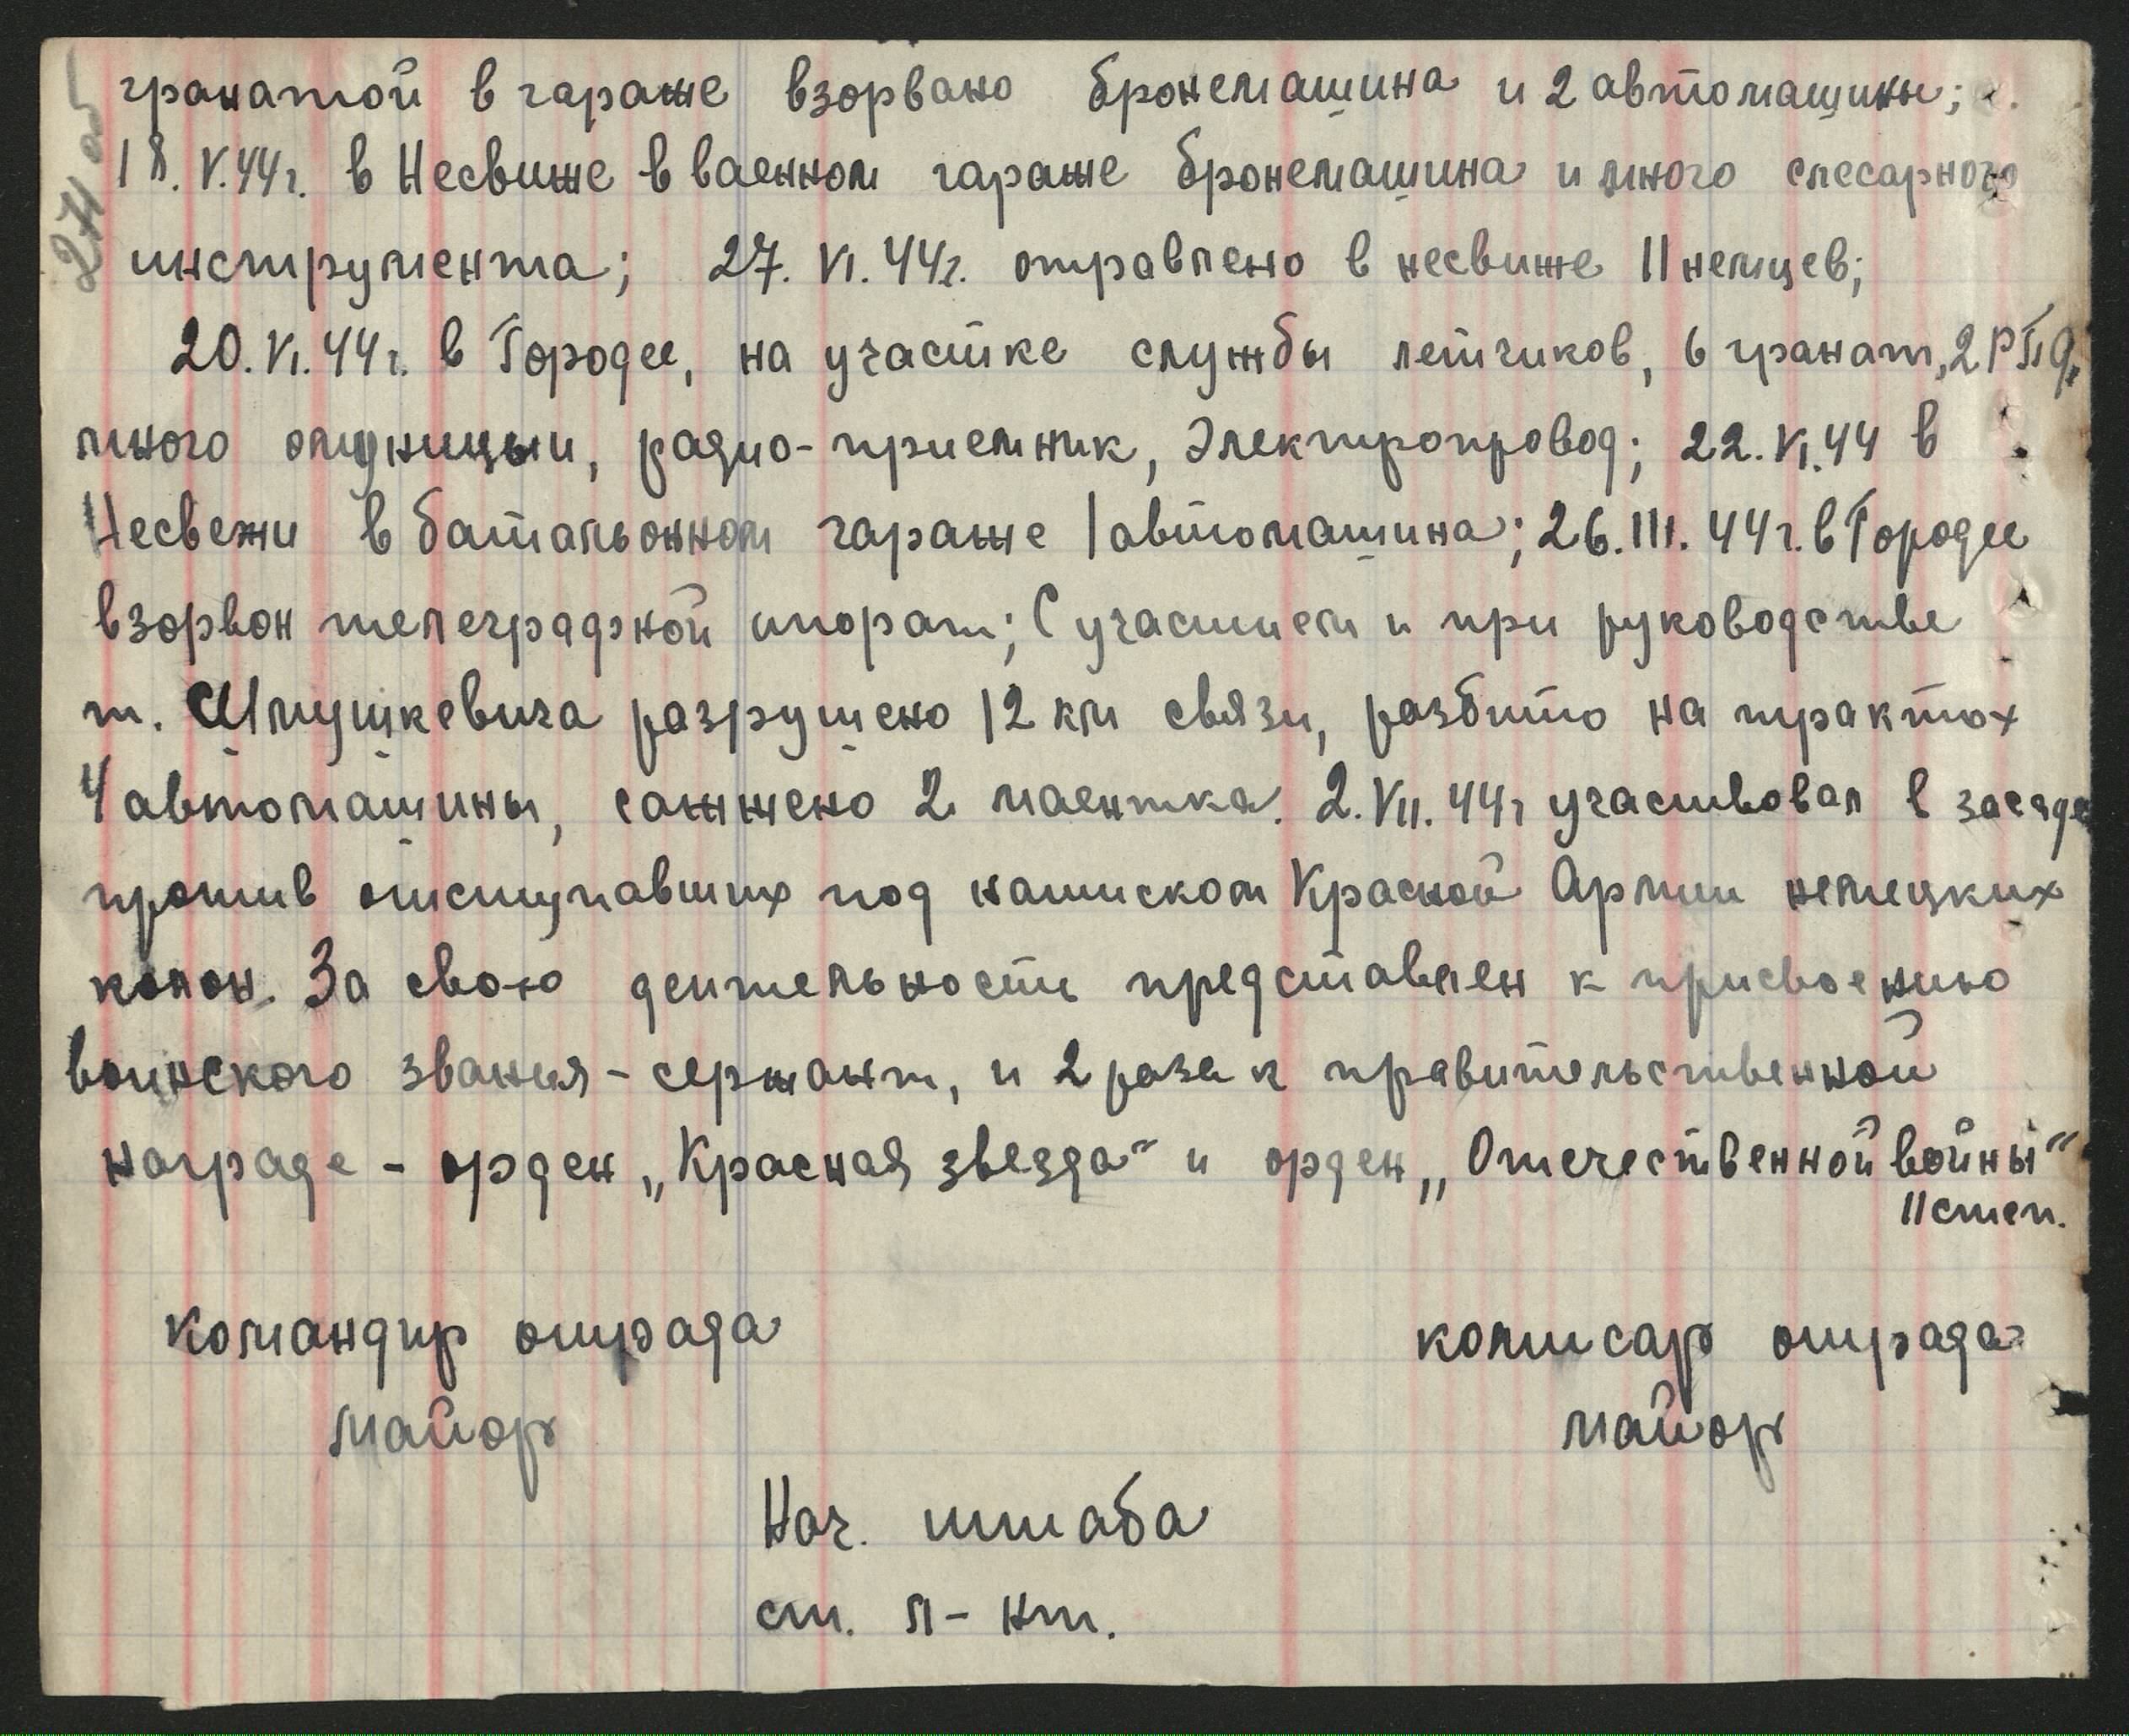 271 об
гранатой в гараже взорвано бронемашина и 2 автомашины;
18.V.44г. в Несвиже в ваенном гараже бронемашина и много слесарного
инструмента; 27.VI.44г. отравлено в несвиже 11 немцев;
20.VI.44г. в Городее, на участке службы летчиков, 6 гранат, 2 РПД,
много амуниции, радио-приемник, Электропровод; 22.VI.44 в
Несвежи в батальонном гараже 1 автомашина; 26.III.44г. в Городее
взорвон телеграфной апорат; С участием и при руководстве
т. Шмушкевича разрушено 12 км связи, разбито на трактах
4 автомашины, сажжено 2 маентка. 2.VII.44г участвовал в засаде
против отступавших под натиском Красной Армии немецких
колон. За свою деительность представлен к присвоению
воинского звания - сержант, и 2 раза к правительственной
награде - орден „Красная звезда" и орден „Отечественной войны"
II степ.
командир отрада комисар отрада
майор майор
Нач. штаба
ст. л-нт.